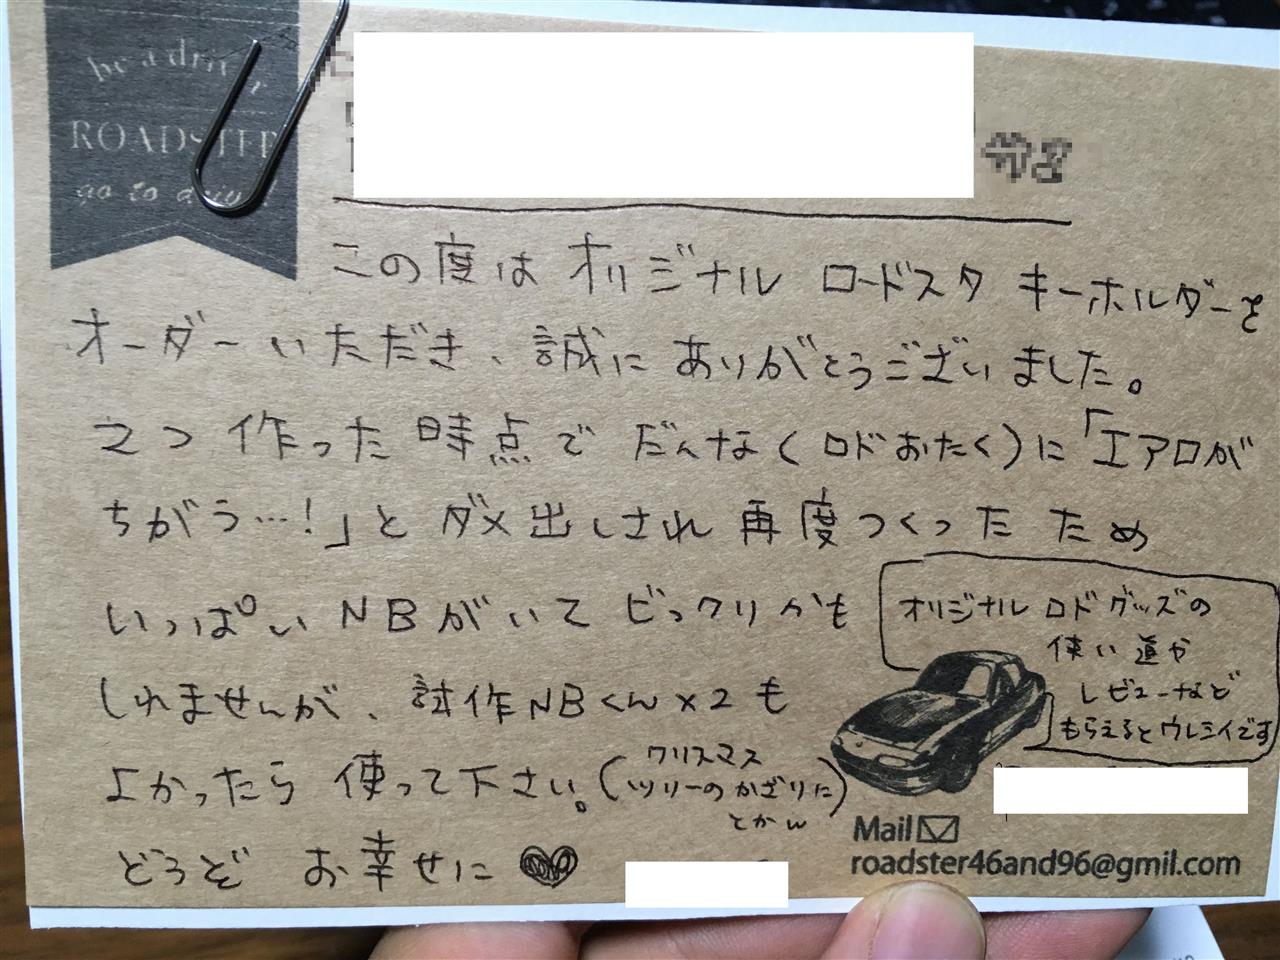 be a driver
ROADSTER
go to drive!
この度は オリジナル ロードスタ キーホルダーを
オーダーいただき、誠に ありがとうございました。
2つ 作った 時点で だんな(ロドおたく)に「エアロが
ちがう…!」と ダメ出しされ 再度つくった ため
いっぱい NBがいて ビックリかも
しれませんが、試作NBくん×2も
よかったら 使って下さい。(クリスマス
ツリーの かざりに
とかw)
どうぞ お幸せに
オリジナル ロドグッズの
使い道や
レビューなど
もらえるとウレシイです
Mail
roadster46and96@gmil.com